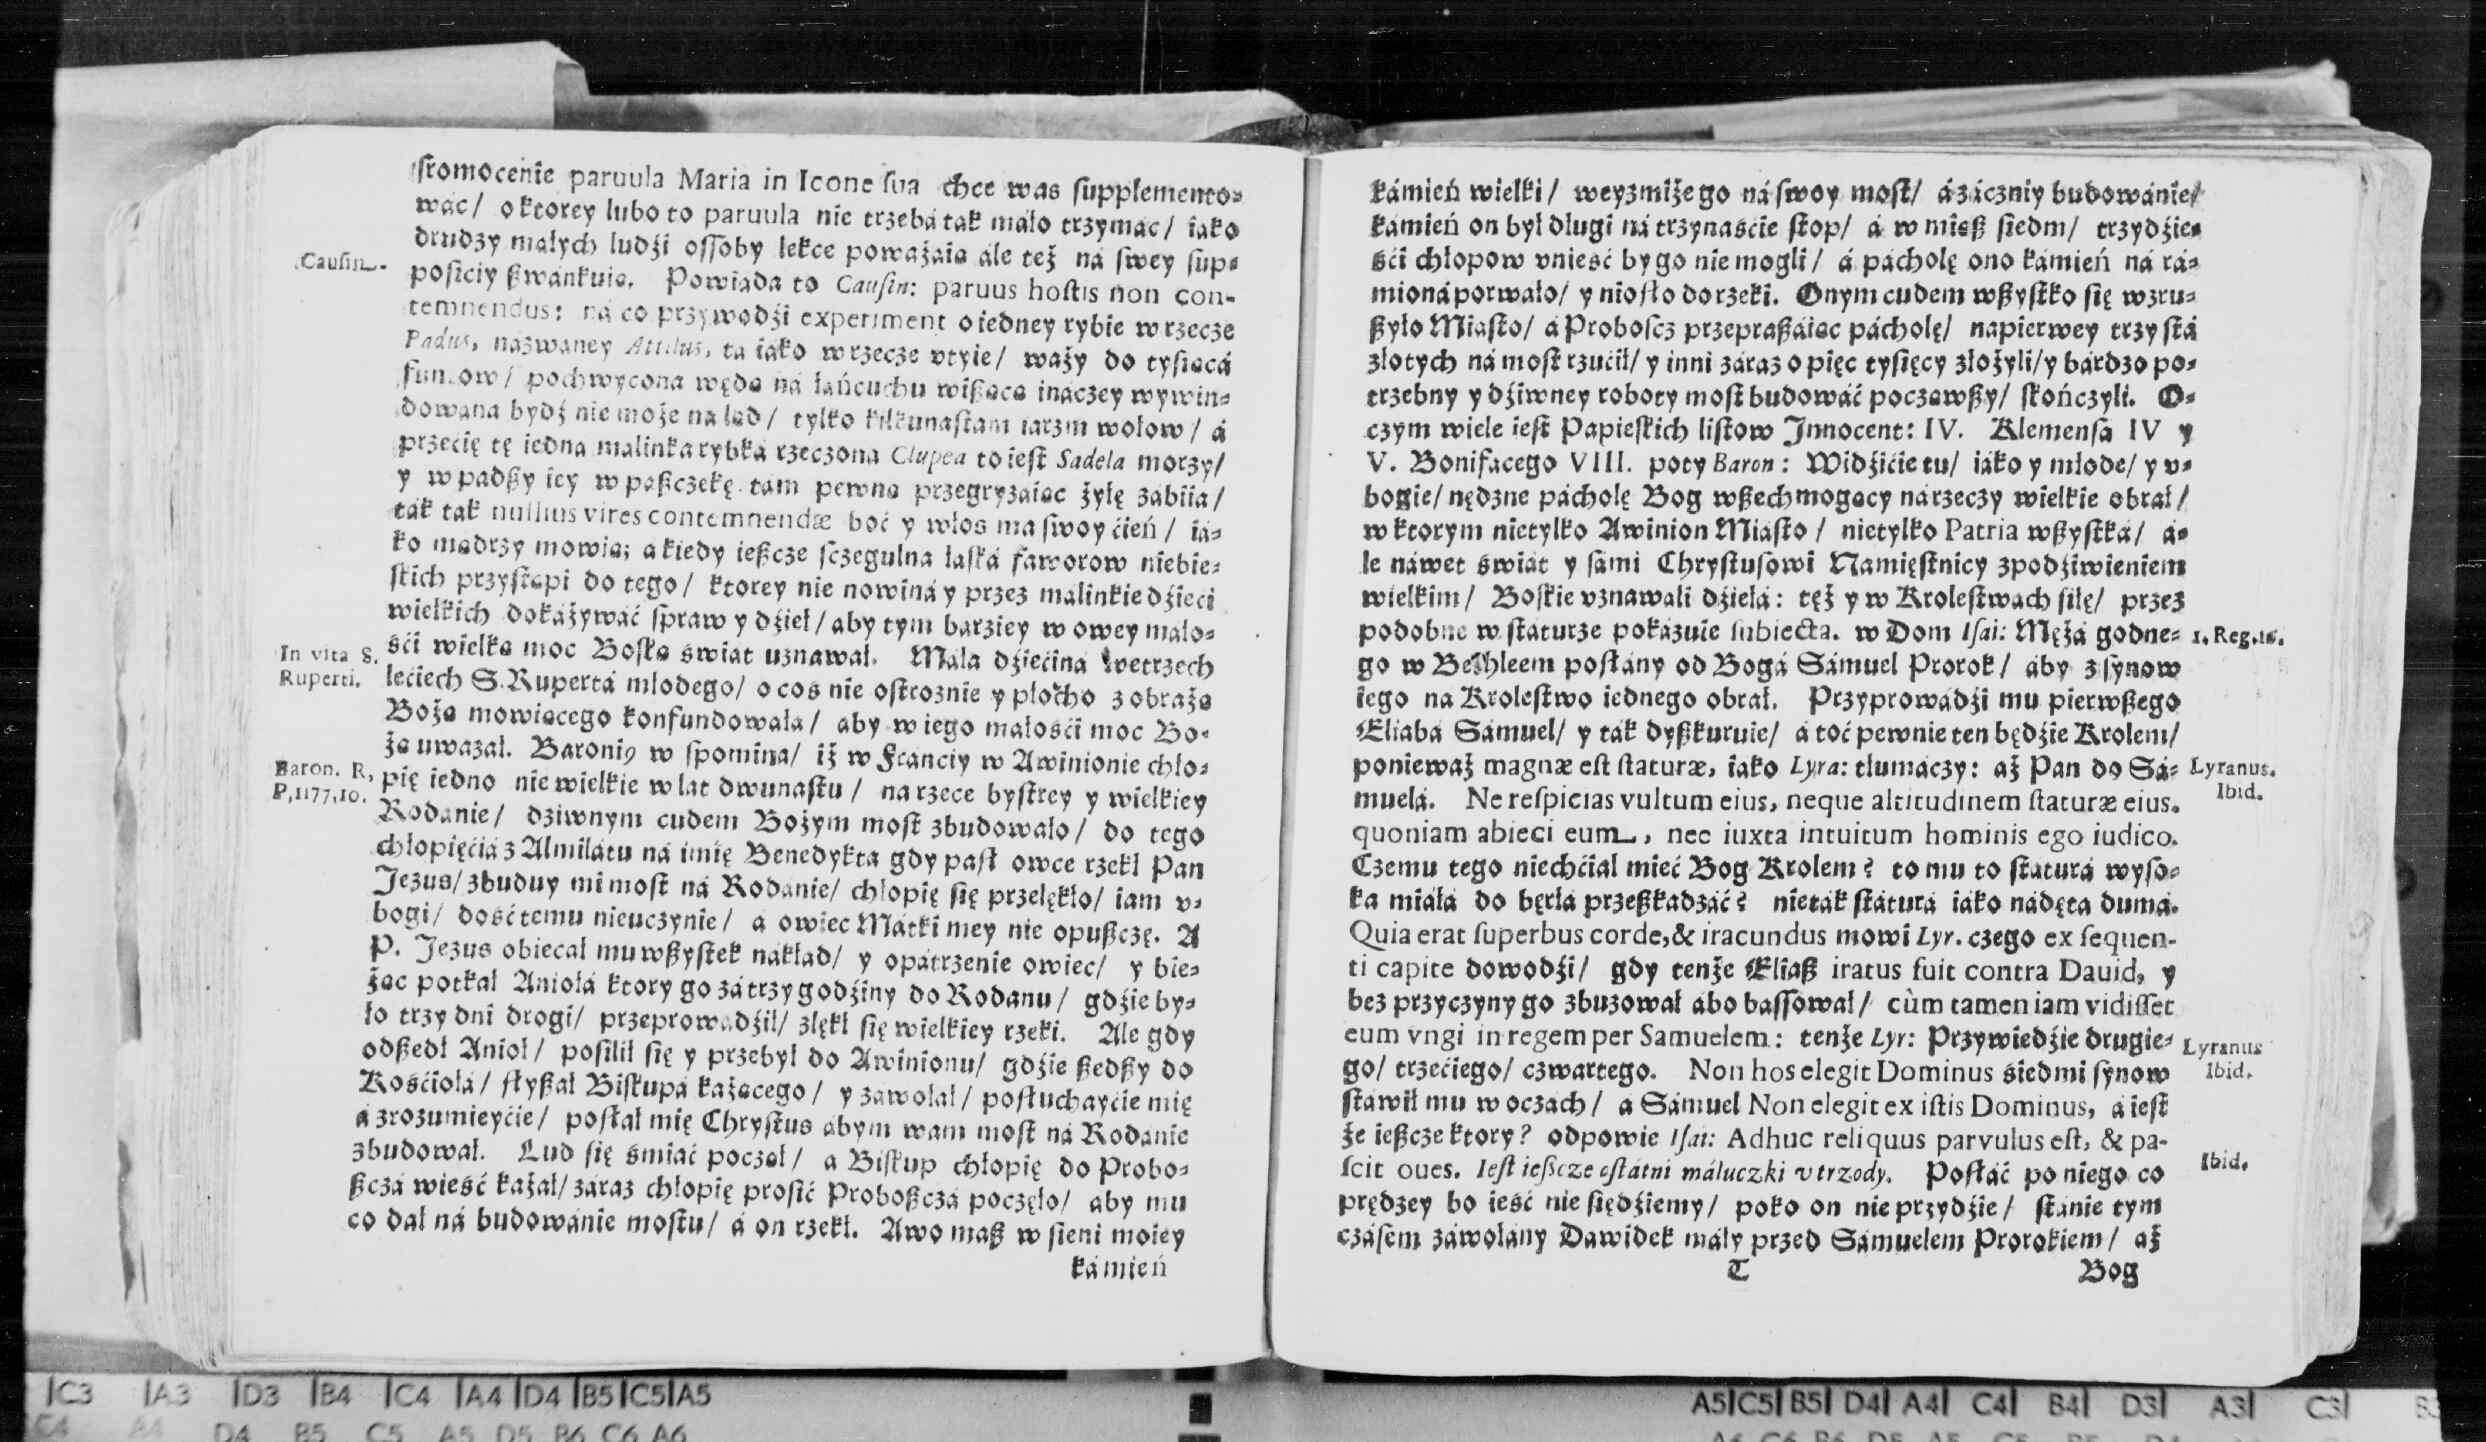 ſromocenie paruula Maria in Icone ſua chce was ſupplemento-
wáć/ o ktorey lubo to paruula nie trzebá ták máło trzymáć/ iáko
drudzy małych ludźi oſſoby lekce poważáią ále też ná ſwey ſup-
Cauſin.
poſiciy ßwánkuią. Powiáda to Cauſin: paruus hoſtis non con-
temnendus: ná co przywodźi experiment o iedney rybie w rzecze
Padus, názwáney Attilus, tá iáko w rzecze vtyie/ waży do tyſiącá
funtow/ pochwycona wędą ná łáńcuchu wißącą ináczey wywin-
dowána bydź nie może ná ląd/ tylko kilkunaſtam iarzm wołow/ á
przećię tę iedná málinka rybká rzeczona Clupea to ieſt Sadela morzy/
y w padßy iey w paßczekę tám pewną przegryzáiąc żyłę zábiia/
ták ták nullius vires contemnendæ boć y włos ma ſwoy ćień/ iá-
ko mądrzy mowią; á kiedy ießcze ſczegulna łáſká fáworow niebie-
ſkich przyſtąpi do tego/ ktorey nie nowiná y przez málinkie dźieći
wielkich dokázywáć ſpraw y dźieł/ áby tym bárziey w owey máło-
śći wielką moc Boſką świát uznawał. Máła dźiećiná we trzech
In vita S.
Ruperti.
lećiech S. Rupertá młodego/ o coś nie oſtrożnie y płocho z obrázą
Bożą mowiącego konfundowáłá/ áby w iego máłośći moc Bo-
żą uważał. Baroni9 w ſpomina/ iż w Fránciy w Awinionie chło-
Baron. R,
P,1177,10.
pię iedno nie wielkie w lat dwunaſtu/ ná rzece byſtrey y wielkiey
Rodanie/ dziwnym cudem Bożym moſt zbudowáło/ do tego
chłopięćiá z Almilátu ná imię Benedyktá gdy paſł owce rzekł Pan
Jezus/ zbuduy mi moſt ná Rodanie/ chłopię się przelękło/ iam v-
bogi/ dość temu nieuczynię/ á owiec Mátki mey nie opußczę. A
P. Jezus obiecał mu wßyſtek nakład/ y opátrzenie owiec/ y bie-
żąc potkał Aniołá ktory go zá trzy godźiny do Rodanu/ gdźie by-
ło trzy dni drogi/ przeprowádźił/ zlękł się wielkiey rzeki. Ale gdy
odßedł Anioł/ poſilił się y przebył do Awinionu/ gdźie ßedßy do
Kośćiołá/ ſłyßał Biſkupá każącego/ y záwołał/ poſłuchayćie mię
á zrozumieyćie/ poſłał mię Chryſtus ábym wam moſt ná Rodanie
zbudował. Lud się śmiáć począł/ á Biſkup chłopię do Probo-
ßczá wieść kazał/ záraz chłopię prośić Proboßczá poczęło/ áby mu
co dał ná budowánie moſtu/ á on rzekł. Awo maß w ſieni moiey
kámień
kámień wielki/ weyzmiże go ná ſwoy moſt/ á zácżniy budowánie/
kámień on był długi ná trzynaśćie ſtop/ á w mieß ſiedm/ trzydźie-
śći chłopow vnieść by go nie mogli/ á pácholę ono kámień ná rá-
mioná porwáło/ y nioſło do rzeki. Onym cudem wßyſtko się wzru-
ßyło Miáſto/ á Proboſcz przepraßáiąc pácholę/ napierwey trzy ſtá
złotych ná moſt rzućił/ y inni záraz o pięc tyſięcy złożyli/ y bárdzo po-
trzebny y dźiwney roboty moſt budowáć począwßy/ ſkończyli. O-
czym wiele ieſt Papieſkich liſtow Innocent: IV. Klemenſa IV y
V. Bonifacego VIII. poty Baron: Widźićie tu/ iáko y młode/ y v-
bogie/ nędzne pácholę Bog wßechmogący ná rzeczy wielkie obrał/
w ktorym nietylko Awinion Miáſto/ nietylko Patria wßyſtká/ á-
le náwet świát y ſámi Chryſtuſowi Namięſtnicy z podźiwieniem
wielkim/ Boſkie vznawáli dźiełá: też y w Kroleſtwách ſiłę/ przez
podobne w ſtáturze pokázuie ſubiecta. w Dom Iſai: Mężá godne-
1. Reg.16.
go w Bethleem poſłány od Bogá Sámuel Prorok/ áby z ſynow
iego ná Kroleſtwo iednego obrał. Przyprowádźi mu pierwßego
Eliabá Sámuel/ y ták dyßkuruie/ á toć pewnie ten będźie Krolem/
poniewaß magnæ eſt ſtaturæ, iáko Lyra: tłumáczy: áż Pan do Sá-
Lyranus.
Ibid.
muelá. Ne reſpicias vultum eius, neque altitudinem ſtaturæ eius.
quoniam abieci eum, nec iuxta intuitum hominis ego iudico.
Czemu tego niechćiał mieć Bog Krolem? to mu to ſtáturá wyſo-
ka miáłá do berłá przeßkadzáć? nieták ſtáturá iáko nádęta dumá.
Quia erat ſuperbus corde, & iracundus mowi Lyr. czego ex ſequen-
ti capite dowodźi/ gdy tenże Eliaß iratus fuit contra Dauid, y
bez przyczyny go zbuzował ábo báſſował/ cùm tamen iam vidiſſet
eum vngi in regem per Samuelem: tenże Lyr: Przywiedźie drugie-
Lyranus
Ibid.
go/ trzećiego/ czwartego. Non hos elegit Dominus siedmi ſynow
ſtáwił mu w oczách/ á Sámuel Non elegit ex iſtis Dominus, á ieſt
że ießcze ktory? odpowie Iſai: Adhuc reliquus parvulus eſt, & pa-
Ibid.
ſcit oues. Ieſt ießcze oſtátni máluczki v trzody. Poſłáć po niego co
prędzey bo ieść nie siędźiemy/ poko on nie przydźie/ ſtánie tym
czáſem záwołány Dawidek máły przed Sámuelem Prorokiem/ áż
T
Bog
C3 A3 D3 B4 C4 A4 D4 B5 C5 A5
A5 C5 B5 D4 A4 C4 B4 D3 A3 C3
D4 B5 C5 A5 D5 B6 C6 A6